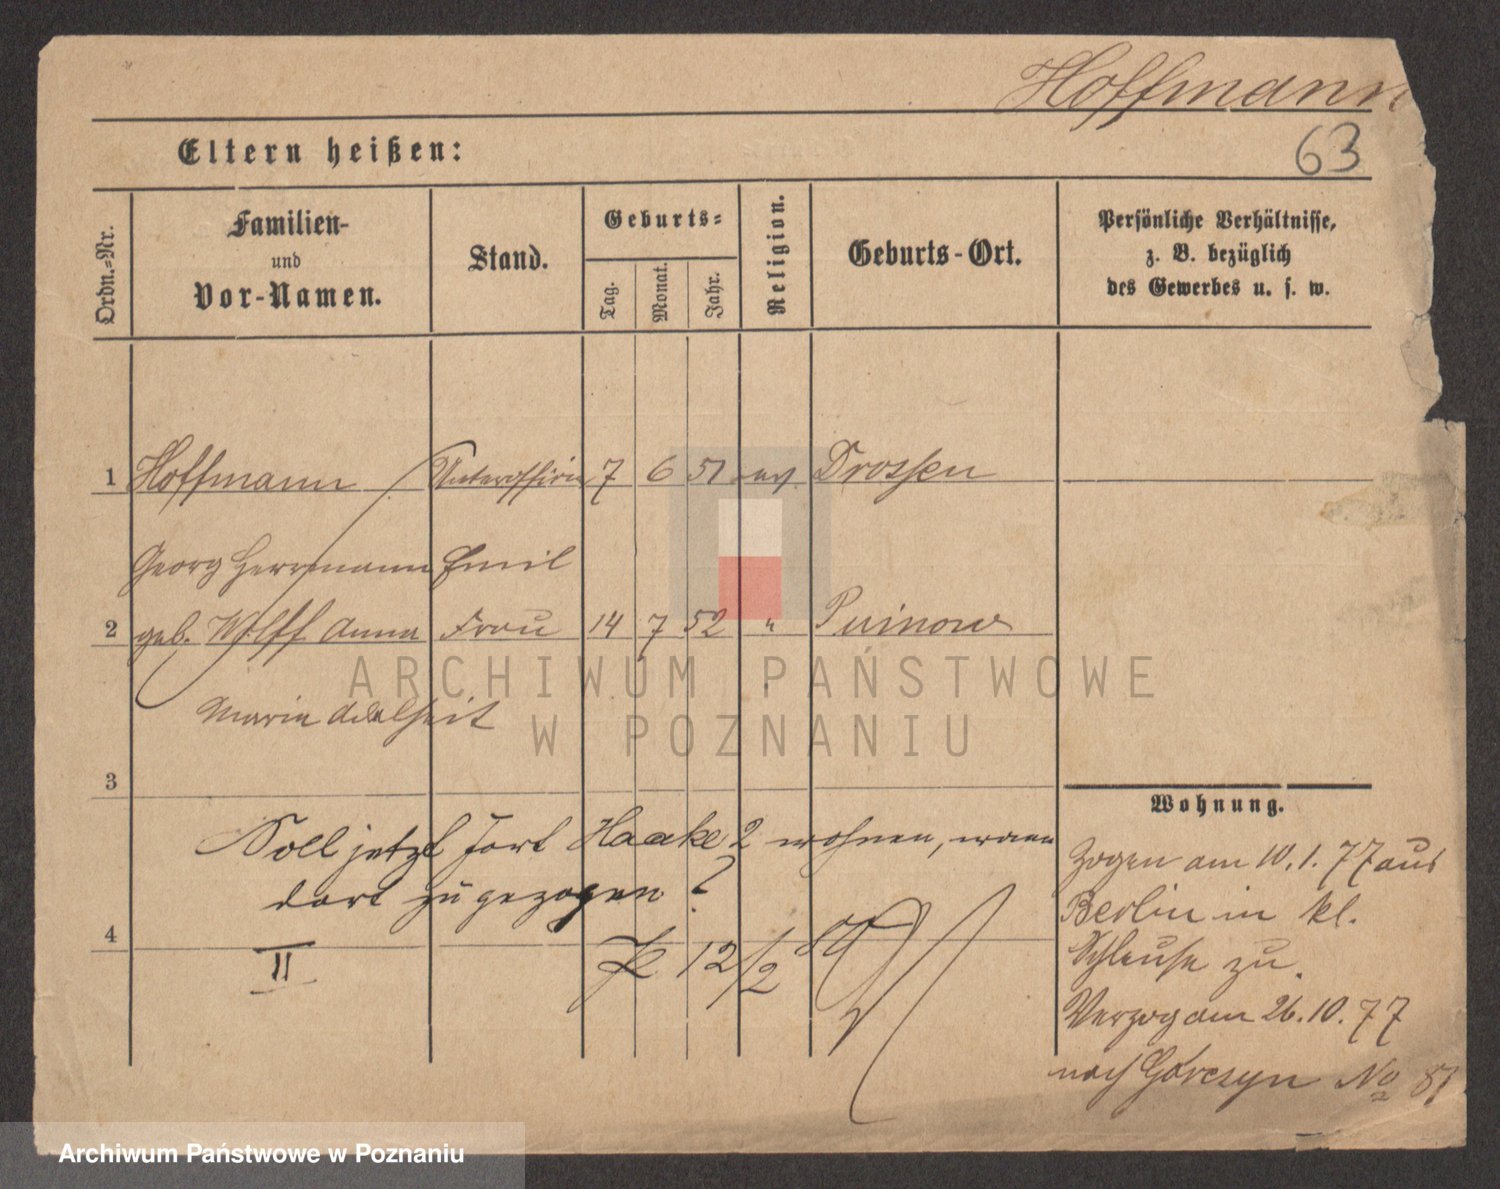 Hoffmann
63
Eltern heißen:
Ordn.=Nr.
Familien-
und
Vor-Namen.
Stand.
Geburts=
Tag.
Monat.
Jahr.
Religion.
Geburts-Ort.
Persönliche Verhältnisse,
z. B. bezüglich
des Gewerbes u. s. w.
1 Hoffmann Unteroffizier 7 6 51 ev. Drossen
Georg Herrmann Emil
2 geb. Wolff Anna Frau 14 7 52 "
Maria Adelheit
ARCHIWUM PAŃSTWOWE
W POZNANIU
3
Soll jetzt Fort Haake 2 wohnen, wann
dort zugezogen?
4
II
12/2
Wohnung.
Zogen am 10.1.77 aus
Berlin in kl.
Schleuse zu.
Verzog am 26.10.77
nach Górczyn No 81
Archiwum Państwowe w Poznaniu